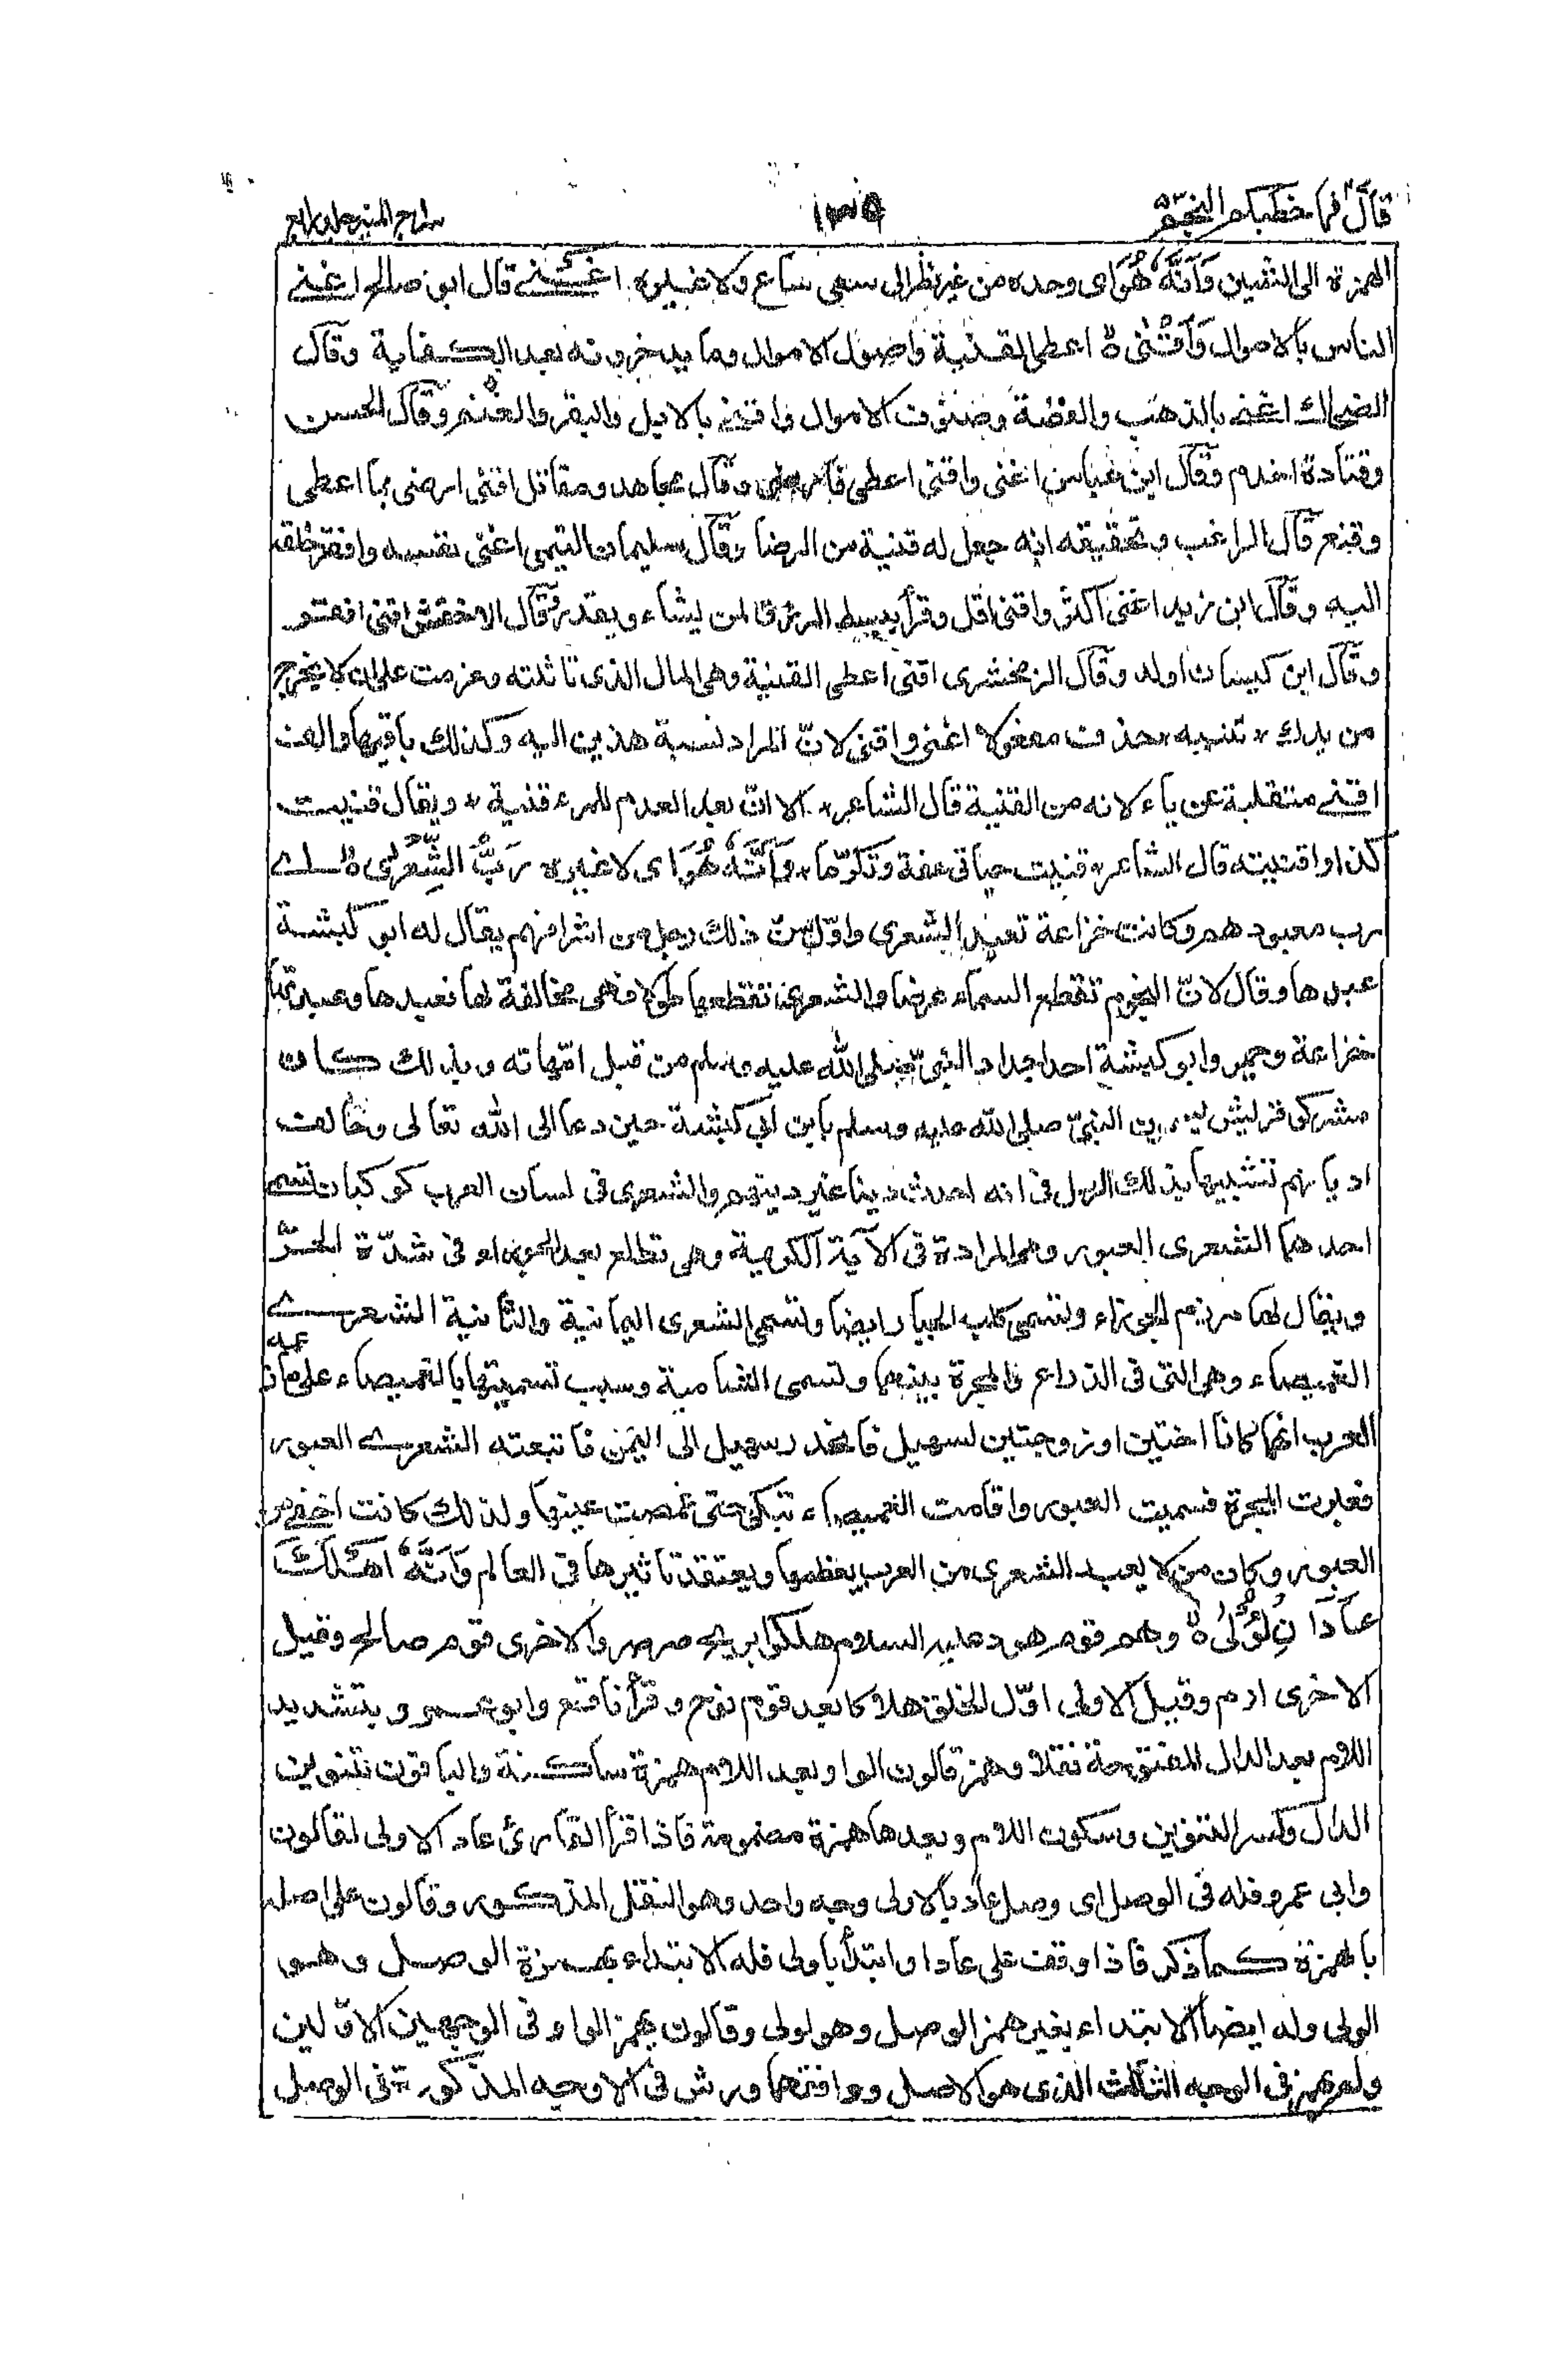 قال فما خطبكم النجم ٥٣
١٣٥
سراج المنير جلد رابع
الهمزة الى الشين وَاَنَّهٗ هُوَ اى وحده من غير نظر الى سعى ساع ولا غيره اغنى قال ابو صالح اغنى
الناس بالاموال وَاَقْنٰى ۙ اعطى القنية واصول الاموال وما يدخرونه بعد الكفاية وقال
الضحاك اغنى بالذهب والفضة وصنوف الاموال واقنى بالابل والبقر والغنم وقال الحسن
وقتادة اخدم وقال ابن عباس اغنى واقنى اعطى فارضى وقال مجاهد ومقاتل اقنى ارضى بما اعطى
وقنع قال الراغب وتحقيقه انه جعل له قنية من الرضا وقال سليمان التيمى اغنى نفسه وافقر خلقه
اليه وقال ابن زيد اغنى اكثر واقنى اقل وقرأ يبسط الرزق لمن يشاء ويقدر وقال الاخفش اقنى افقر
وقال ابن كيسان اولد وقال الزمخشرى اقنى اعطى القنية وهى المال الذى تاثلته وعزمت على ان لا يخرج
من يدك * تنبيه * حذف مفعولا اغنى واقنى لانّ المراد نسبة هذين اليه وكذلك باقيها والف
اقنى منقلبة عن ياء لانه من القنية قال الشاعر * الا ان بعد العدم للمرء قنية * ويقال قنيت
كذا واقنيته قال الشاعر * قنيت حياتى عفة وتكرّما * وَاَنَّهٗ هُوَ اى لا غيره رَبُّ الشِّعْرٰى ۙ اى
رب معبودهم وكانت خزاعة تعبد الشعرى واوّل من سنّ ذلك رجل من اشرافهم يقال له ابو كبشة
عبدها وقال لانّ النجوم تقطع السماء عرضا والشعرى تقطعها طولا فهى مخالفة لها فعبدها وعبدتها
خزاعة وحمير وابو كبشة احد اجداد النبىّ صلى الله عليه وسلم من قبل امّهاته وبذلك كان
مشركو قريش يسمون النبىّ صلى الله عليه وسلم بابن ابى كبشة حين دعا الى الله تعالى وخالف
اديانهم تشبيها بذلك الرجل فى انه احدث دينا غير دينهم والشعرى فى لسان العرب كوكبان تسمى
احدهما الشعرى العبور وهى المرادة فى الآية الكريمة وهى تطلع بعد الجوزاء فى شدّة الحرّ
ويقال لها مرزم الجوزاء وتسمى كلب الجبار ايضا وتسمى الشعرى اليمانية والثانية الشعرى
الغميصاء وهى التى فى الذراع والمجرة بينهما وتسمى الشامية وسبب تسميتها بالغميصاء على ما زعمه
العرب انهما كانا اختين او زوجتين لسهيل فانحدر سهيل الى اليمن فاتبعته الشعرى العبور
فعبرت المجرة فسميت العبور واقامت الغميصاء تبكى حتى غمصت عينها ولذلك كانت اخفى من
العبور وكان من لا يعبد الشعرى من العرب يعظمها ويعتقد تاثيرها فى العالم وَاَنَّهٗٓ اَهْلَكَ
عَادَا نِ لْاُوْلٰى ۙ وهم قوم هود عليه السلام هلكوا بريح صرصر والاخرى قوم صالح وقيل
الاخرى ارم وقيل الاولى اوّل الخلق هلاكا بعد قوم نوح وقرأ نافع وابو عمرو بتشديد
اللام بعد الدال المفتوحة نقلا وهمز قالون الواو بعد اللام همزة ساكنة والباقون بتنوين
الدال وكسر التنوين وسكون اللام وبعدها همزة مضمومة فاذا قرأ القارئ عاد الاولى لقالون
وابى عمرو فله فى الوصل اى وصل عاد بالاولى وجه واحد وهو النقل المذكور وقالون على اصله
بالهمزة كما ذكر فاذا وقف على عادا وابتدأ باولى فله الابتداء بهمزة الوصل وهو
الولى وله ايضا الابتداء بغير همز الوصل وهو لولى وقالون بهمز الواو فى الوجهين الاوّلين
ولم يهمز فى الوجه الثالث الذى هو الاصل ووافقهما ورش فى الاوجه المذكورة فى الوصل